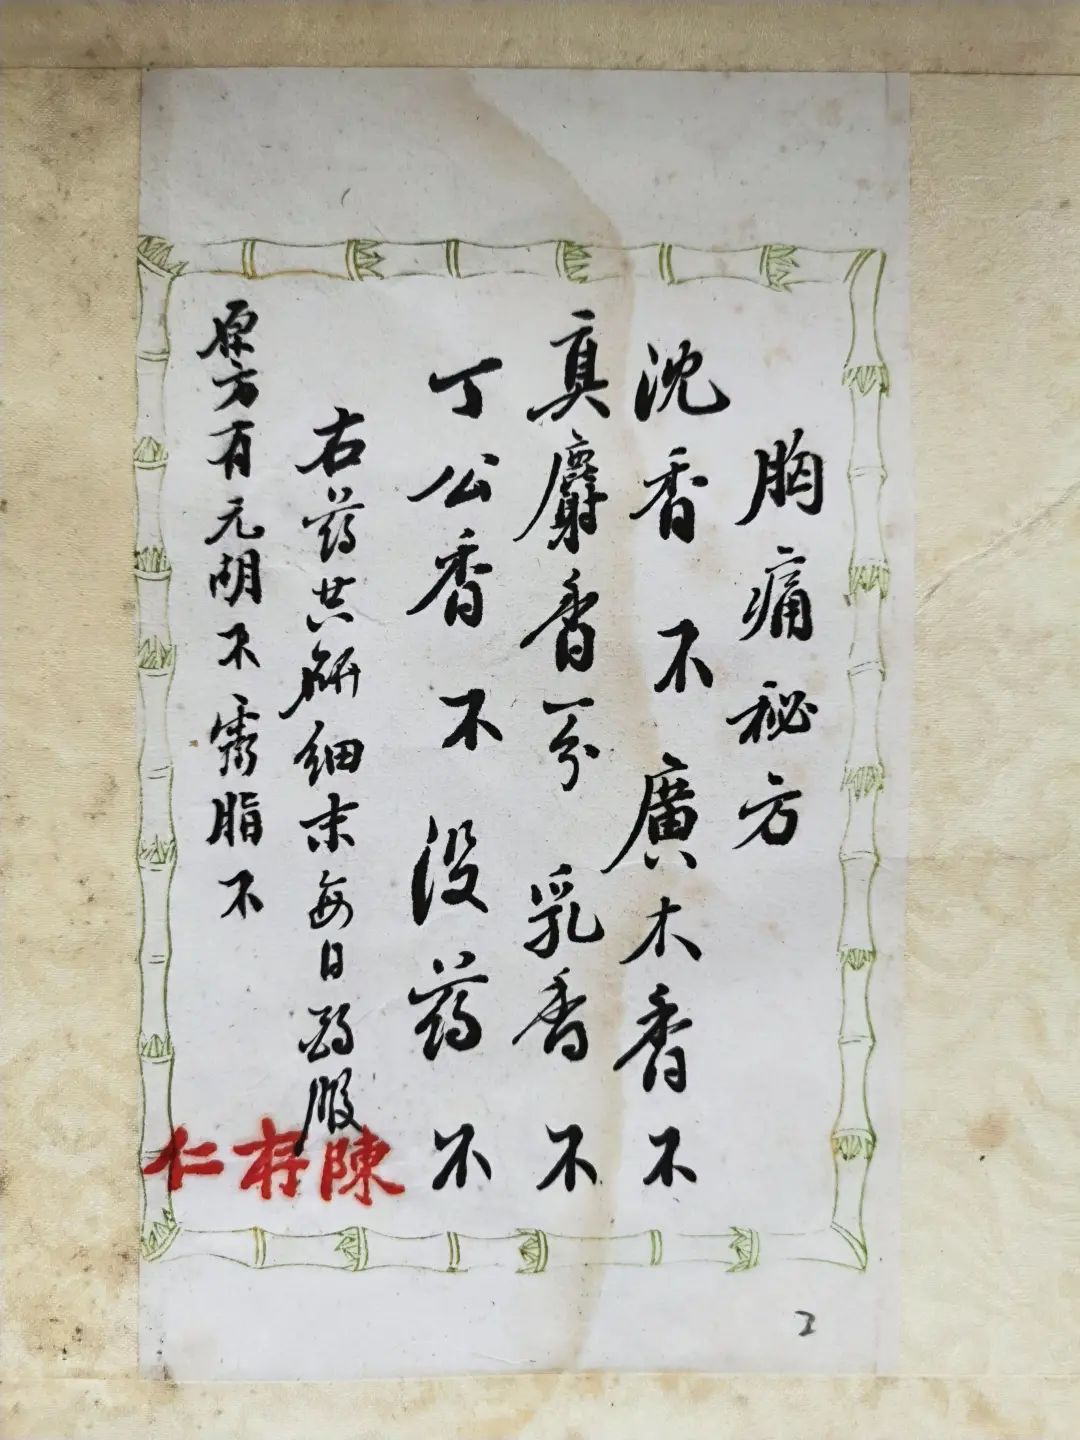 胸痛秘方
沈香不 廣木香不
真麝香一分 乳香不
丁公香不 没药不
右药共研细末每日 服
原方有元胡不 灵脂不
陳存仁